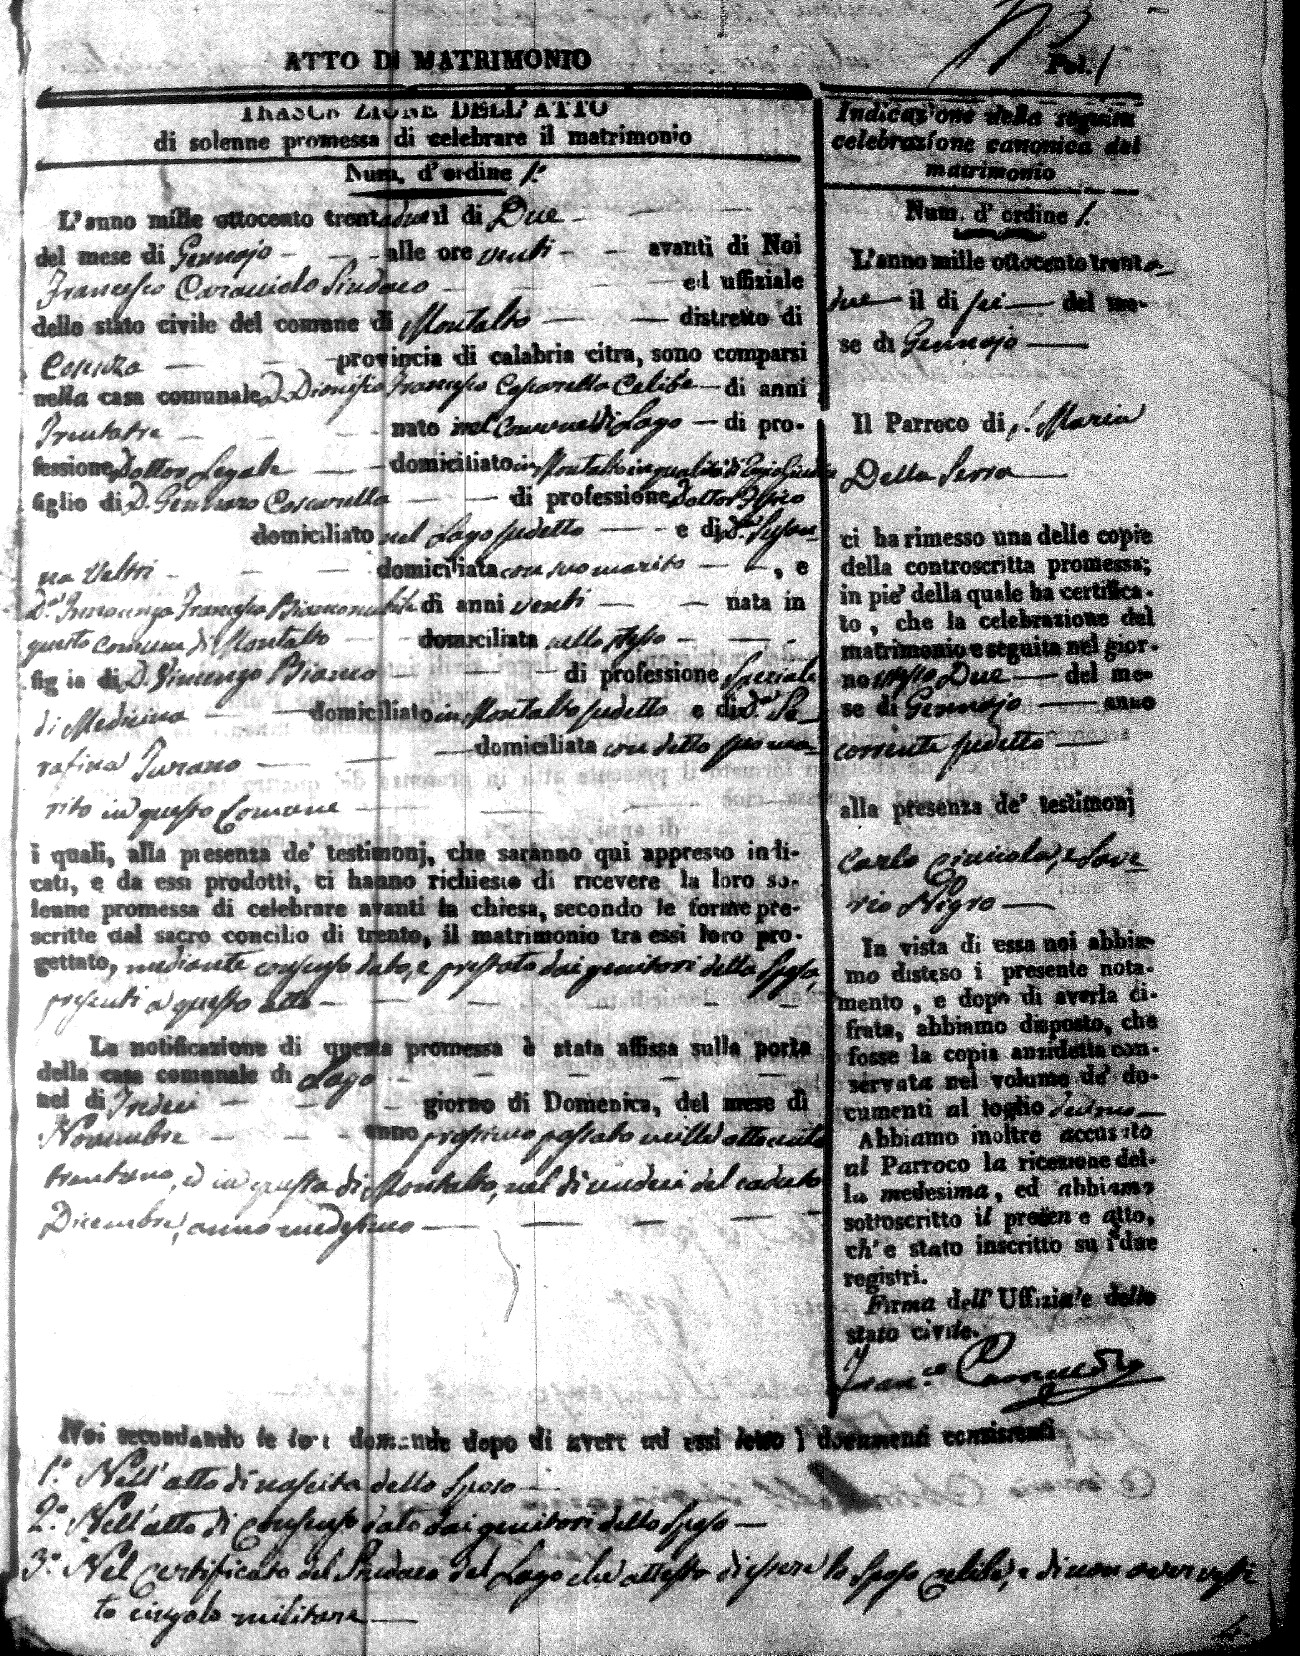 Fol. 1
ATTO DI MATRIMONIO
TRASCRIZIONE DELL'ATTO
di solenne promessa di celebrare il matrimonio
Num. d'ordine 1.°
L'anno mille ottocento trentadue il di Due
del mese di Gennajo alle ore venti avanti di Noi
Francesco Caracciolo Sindaco ed uffiziale
dello stato civile del comune di Montalto distretto di
Cosenza provincia di calabria citra, sono comparsi
nella casa comunale D. Dionisio Francesco Coscarella Celibe di anni
Trentatre nato nel Comune di Lago di pro-
fessione Dottor Legale domiciliato in Montalto in qualità di Regio Giudice
figlio di D. Gennaro Coscarella di professione Dottor Fisico
domiciliato nel Lago sudetto e di D.a Susan
na Veltri domiciliata con suo marito , e
D.a Francesca Bianco nubile di anni venti nata in
questo comune di Montalto domiciliata nello stesso
figlia di D. Vincenzo Bianco di professione Speziale
di Medicina domiciliato in Montalto sudetto e di D.a Se_
rafina Turano domiciliata con detto suo ma_
rito in questo Comune
i quali, alla presenza de' testimonj, che saranno qui appresso indi-
cati, e da essi prodotti, ci hanno richiesto di ricevere la loro so-
lenne promessa di celebrare avanti la chiesa, secondo le forme pre-
scritte dal sacro concilio di trento, il matrimonio tra essi loro pro-
gettato, mediante consenso dato, e prestato dai genitori della Sposa,
presenti a questo atto
La notificazione di questa promessa è stata affissa sulla porta
della casa comunale di Lago
nel di Tredeci giorno di Domenica, del mese di
Novembre anno prossimo passato mille ottocento
trentuno, ed in questa di Montalto, nel di undeci del caduto
Dicembre, anno medesimo
Indicazione della seguita
celebrazione canonica del
matrimonio
Num. d'ordine 1.
L'anno mille ottocento trenta_
due il di sei del me-
se di Gennajo
Il Parroco di S. Maria
Della Serra
ci ha rimesso una delle copie
della controscritta promessa;
in pie' della quale ha certifica-
to, che la celebrazione del
matrimonio e seguita nel gior-
no stesso Due del me-
se di Gennajo anno
corrente sudetto
alla presenza de' testimonj
Carlo , e Save_
rio Nigro
In vista di essa noi abbia-
mo disteso i presente nota-
mento, e dopo di averla ci-
frata, abbiamo disposto, che
fosse la copia anzidetta con-
servata nel volume de' do-
cumenti al foglio
Abbiamo inoltre accusato
al Parroco la ricezione del-
la medesima, ed abbiamo
sottoscritto il presen e atto,
ch' e stato inscritto su i due
registri.
Firma dell' Uffiziale dello
stato civile.
Fran.co Caracciolo
Noi secondando le loro domande dopo di avere ad essi letto i documenti consistenti
1.° Nell'atto di nascita dello Sposo
2.° Nell'atto di Consenso dato dai genitori dello Sposo
3.° Nel certificato del Sindaco del Lago che attesta di essere lo Sposo celibe, e di non aver
to cingolo militare